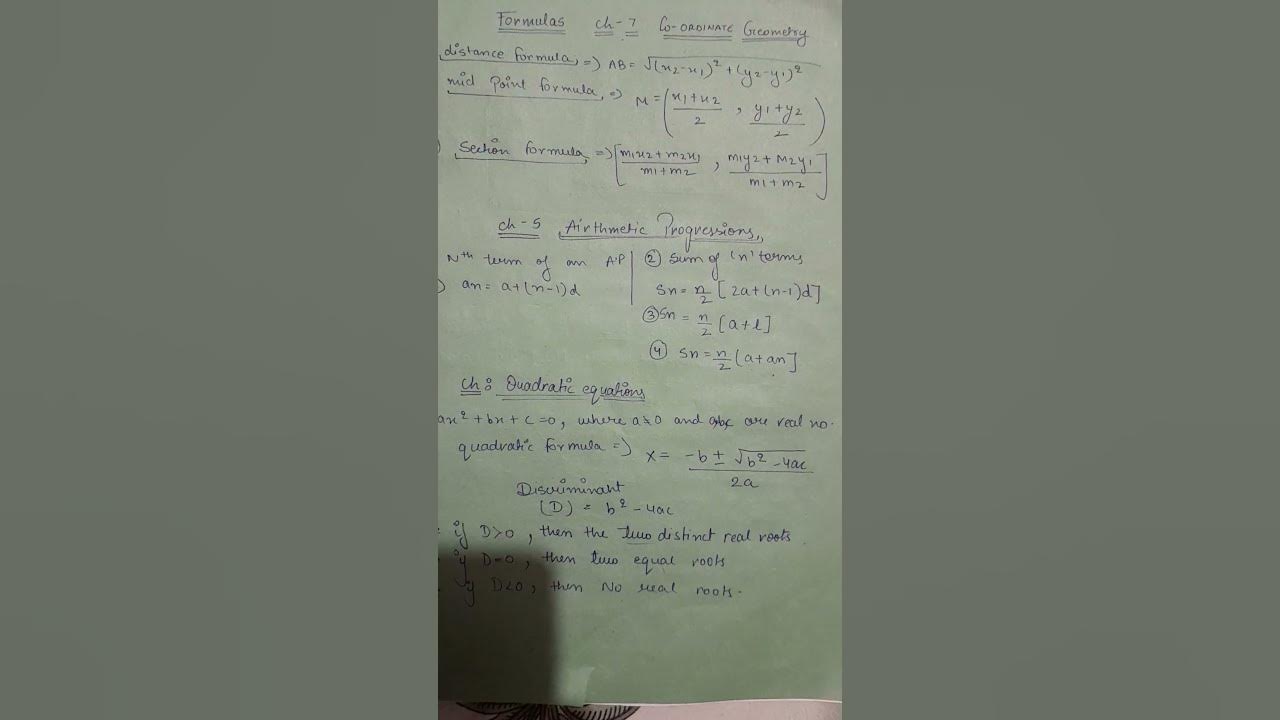 Formulas ch-7 CO-ORDINATE Geometry
distance formula => AB = √(x2-x1)² + (y2-y1)²
mid Point formula => M = (x1+x2/2 , y1+y2/2)
Section formula => [m1x2+m2x1/m1+m2 , m1y2+m2y1/m1+m2]
ch-5 Airthmetic Progressions
Nth term of an A.P
) an = a+(n-1)d
② Sum of 'n' terms
Sn = n/2 [2a+(n-1)d]
③ Sn = n/2 [a+l]
④ Sn = n/2 [a+an]
Ch: Quadratic equations
ax²+bx+c=0, where a≠0 and are real no.
quadratic formula => x = -b ± √b²-4ac / 2a
Discriminant
(D) = b²-4ac
if D>0, then the two distinct real roots
if D=0, then two equal roots
if D<0, then No real roots.